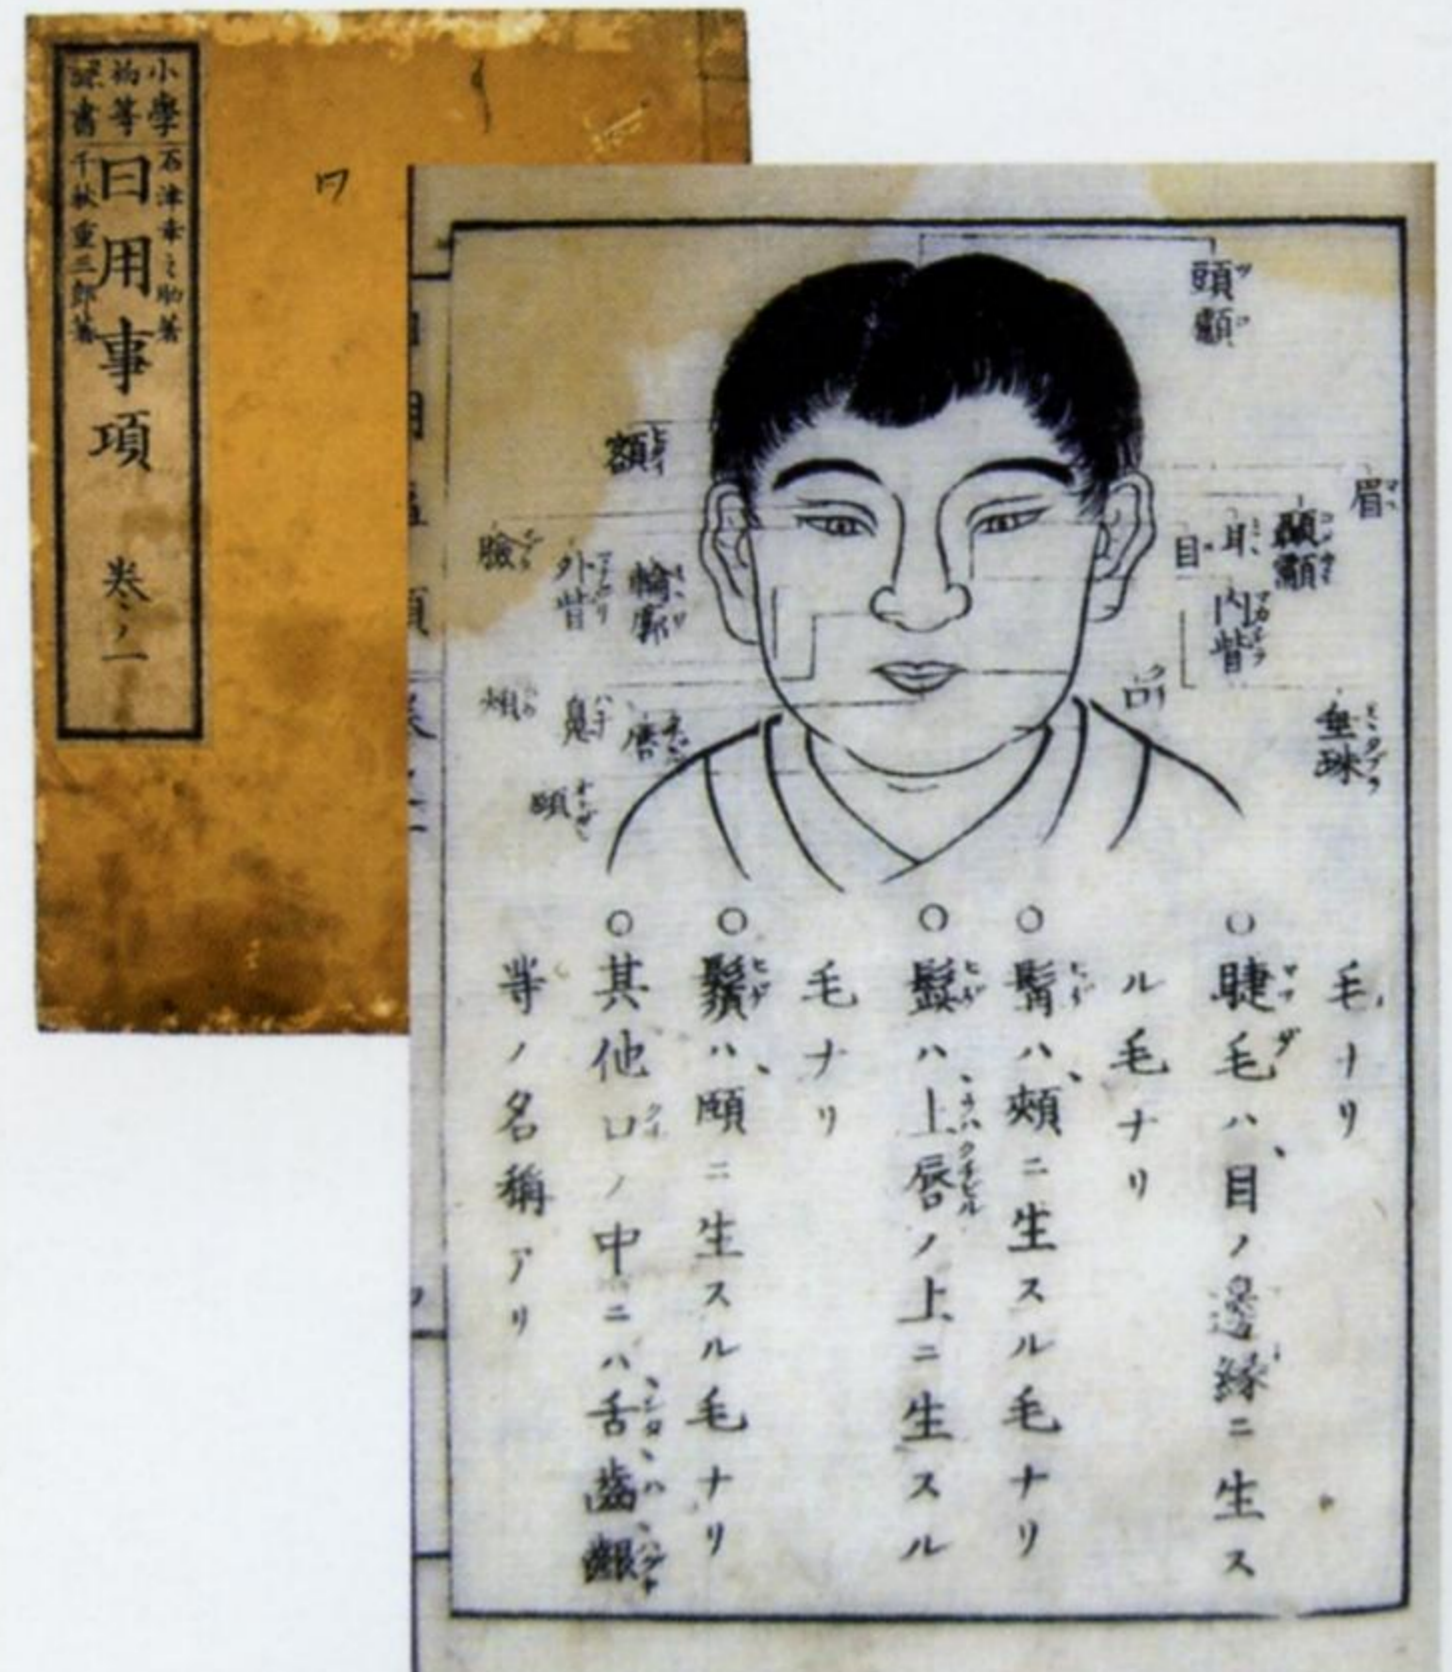 小學
初等
課書
石津幸之助著
日用事項 巻ノ一
千秋重三郎著
ワ
頭顱
額
眉
顳顬
耳
目
内眥
瞼
外眥
輪廓
口
垂珠
頬
鼻
唇
頤
毛ナリ
○睫毛ハ、目ノ邊縁ニ生ス
ル毛ナリ
○髯ハ、頬ニ生スル毛ナリ
○髭ハ、上唇ノ上ニ生スル
毛ナリ
○鬚ハ、頤ニ生スル毛ナリ
○其他口ノ中ニハ、舌、齒、齦
等ノ名稱アリ